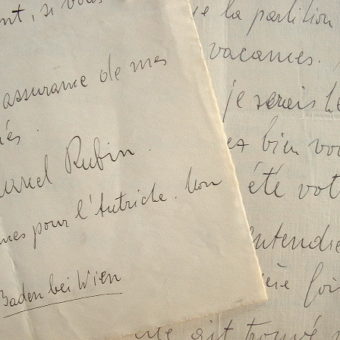 nt, si vous
assurance de mes
és.
arcel Rubin
mes pour l'Autriche. Mon
Baden bei Wien
e la partition
vacances.
je serais he
ez bien vou
été vot
entendre
ière foi
ait trouvé